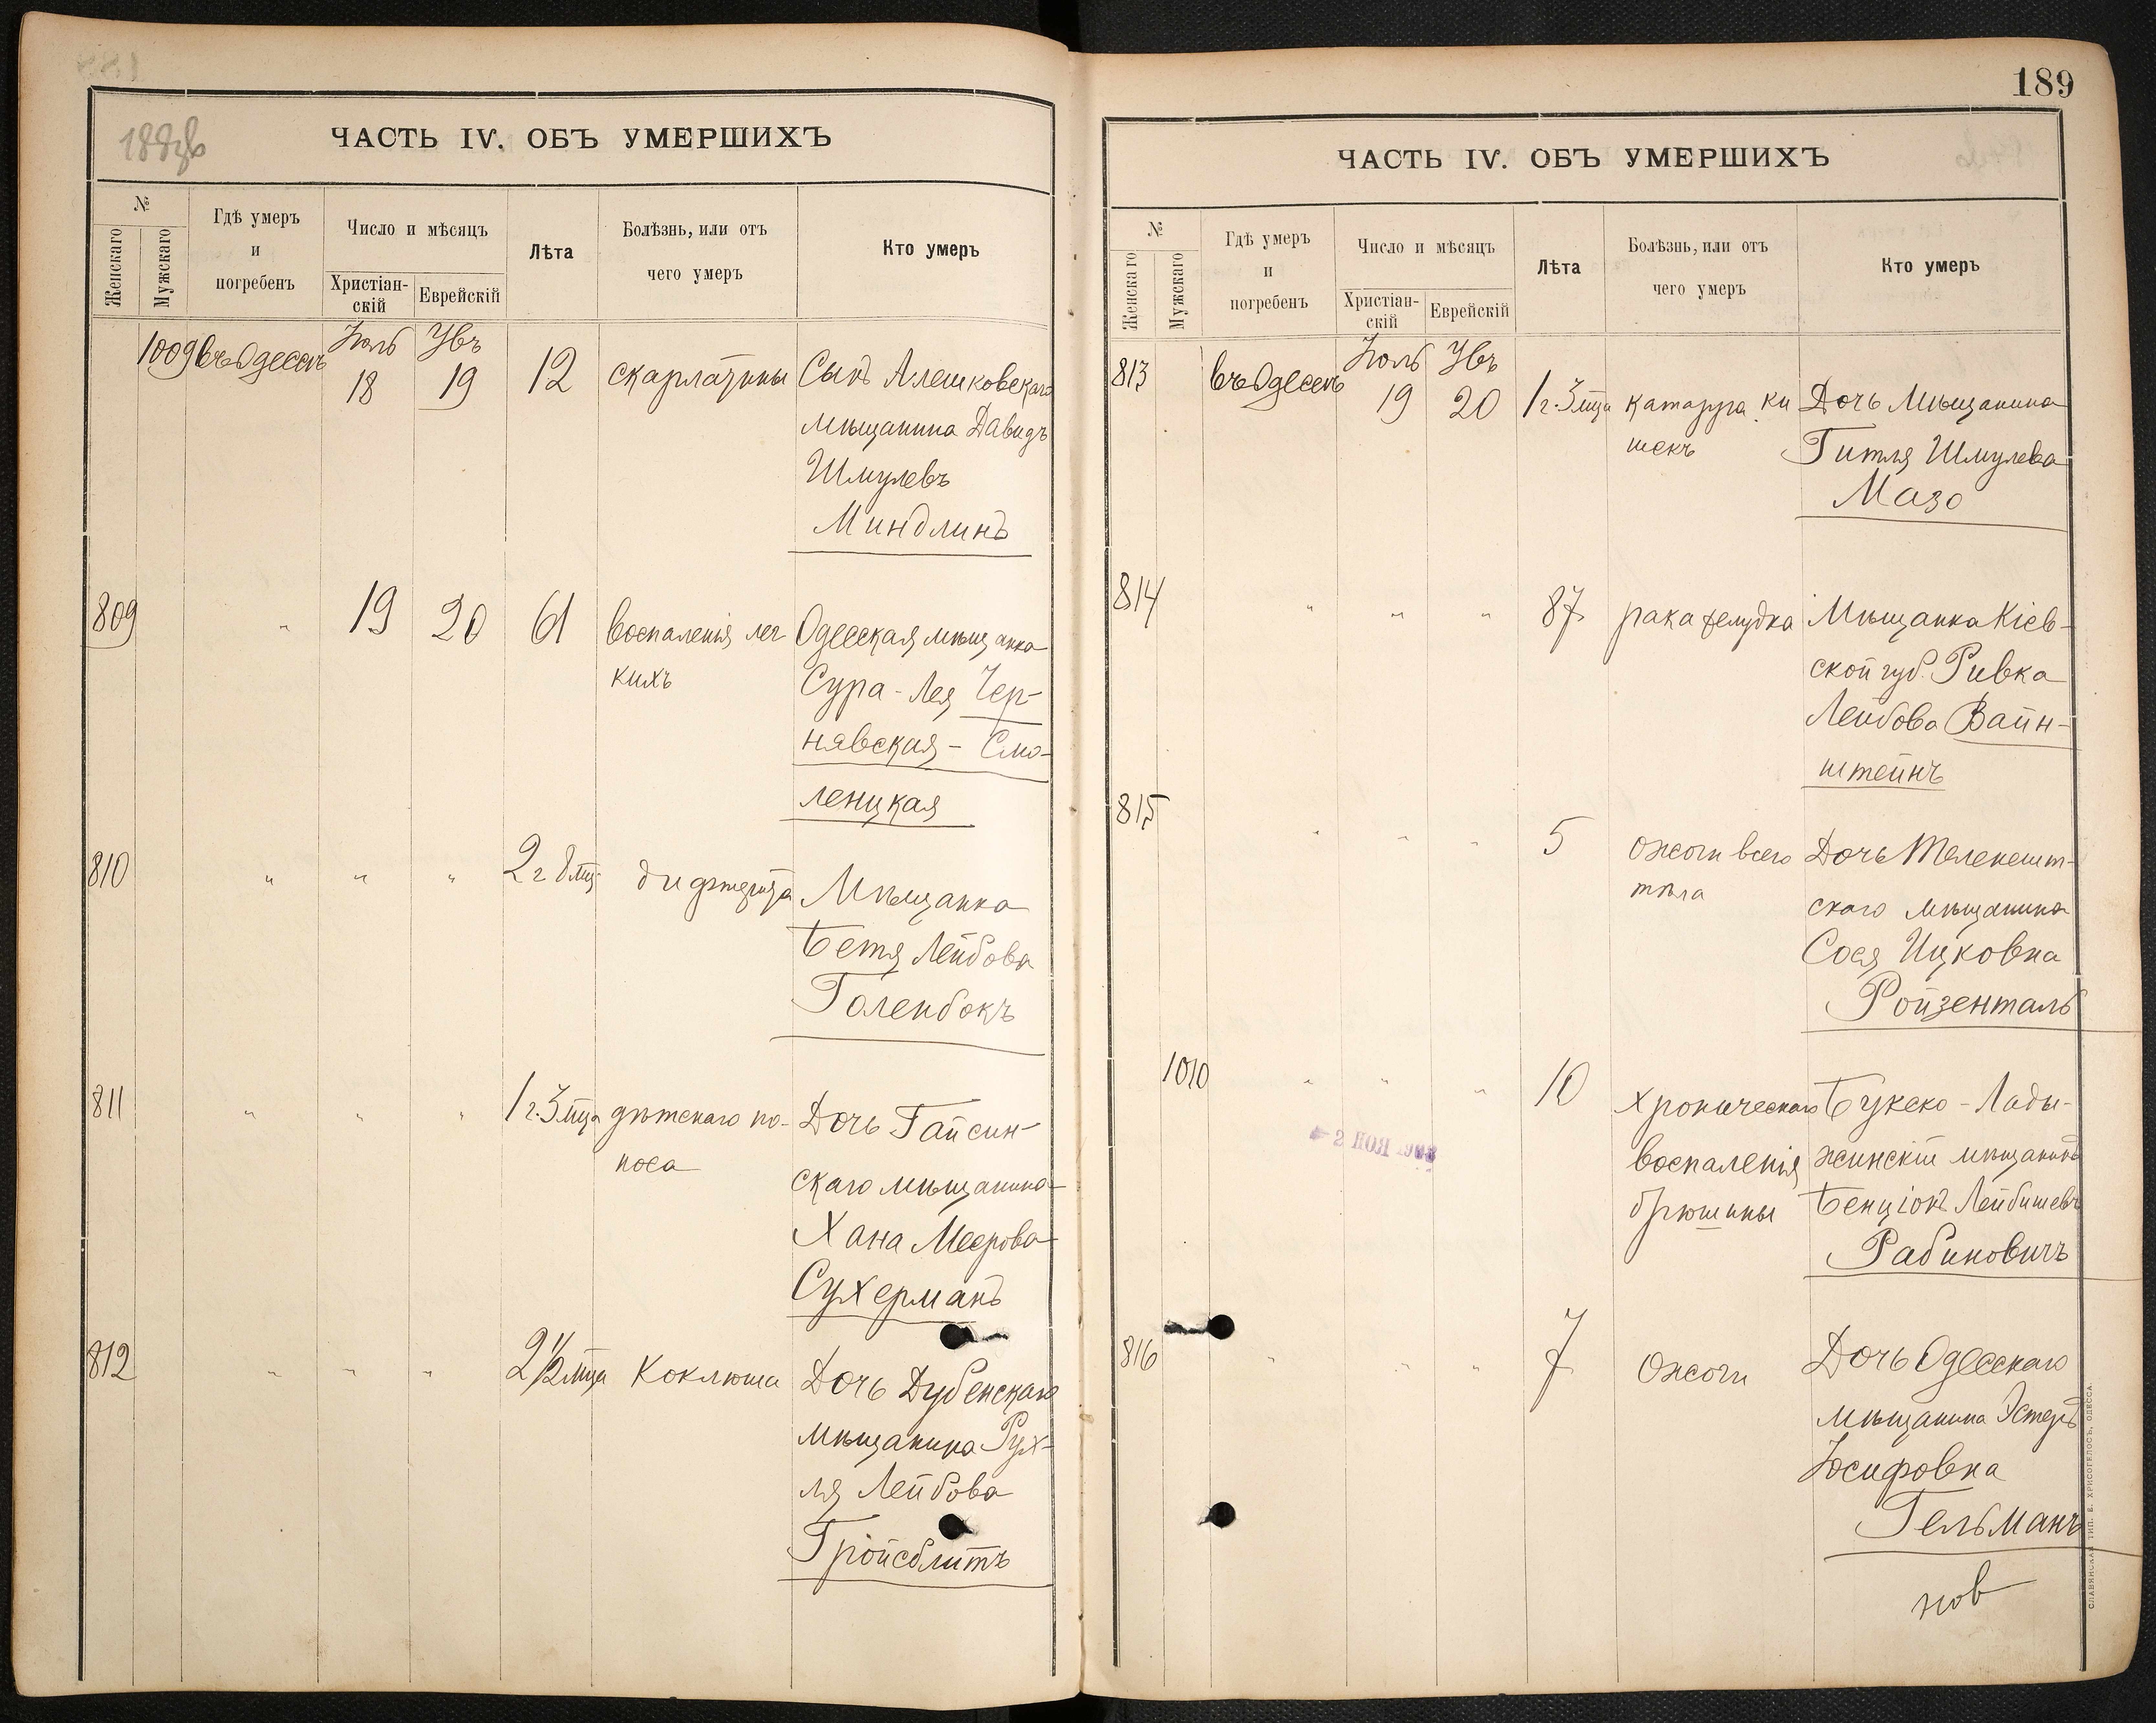 ЧАСТЬ IV. ОБЪ УМЕРШИХЪ
№
Женскаго
Мужскаго
Гдѣ умеръ
и
погребенъ
Число и мѣсяцъ
Христіан-
скій
Еврейскій
Лѣта
Болѣзнь, или отъ
чего умеръ
Кто умеръ
1009
въ Одессѣ
Іюль
18
Увъ
19
12
скарлатины
Сынъ Алешковскаго
мѣщанина Давидъ
Шмулевъ
Миндлинъ
809
"
19
20
61
воспаленія лег
кихъ
Одесская мѣщанка
Сура-Лея Чер-
нявская - Смо-
леницкая
810
" " "
2 г 8 мц
дифтерита
Мѣщанка
Бетя Лейбова
Голенбокъ
811
" " "
1 г. 3 мца
дѣтскаго по-
носа
Дочь Гайсин-
скаго мѣщанина
Хана Меерова
Сухерманъ
812
" " "
2 1/2 мца
Коклюша
Дочь Дубенскаго
мѣщанина Рух-
ля Лейбова
Гройсблитъ
189
ЧАСТЬ IV. ОБЪ УМЕРШИХЪ
№
Женскаго
Мужскаго
Гдѣ умеръ
и
погребенъ
Число и мѣсяцъ
Христіан-
скій
Еврейскій
Лѣта
Болѣзнь, или отъ
чего умеръ
Кто умеръ
813
въ Одессѣ
Іюль
19
Увъ
20
1 г. 3 мца
катарра ки
шекъ
Дочь Мѣщанина
Гитля Шмулева
Мазо
814
" " "
87
рака желудка
Мѣщанка Кіев-
ской губ. Ривка
Лейбова Вайн-
штейнъ
815
" " "
5
ожоги всего
тѣла
Дочь Теленешт-
скаго мѣщанина
Сося Ицковна
Ройзенталь
1010
" " "
10
хроническаго
воспаленія
брюшины
Ладыжинскій мѣщанинъ
Бенціонъ Лейбишевъ
Рабиновичъ
2 НОЯ
816
" " "
7
Ожоги
Дочь Одесскаго
мѣщанина Эстеръ
Іосифовна
Гельманъ
нов
СЛАВЯНСКАЯ ТИП. Е. ХРИСОГЕЛОСЪ, ОДЕССА.